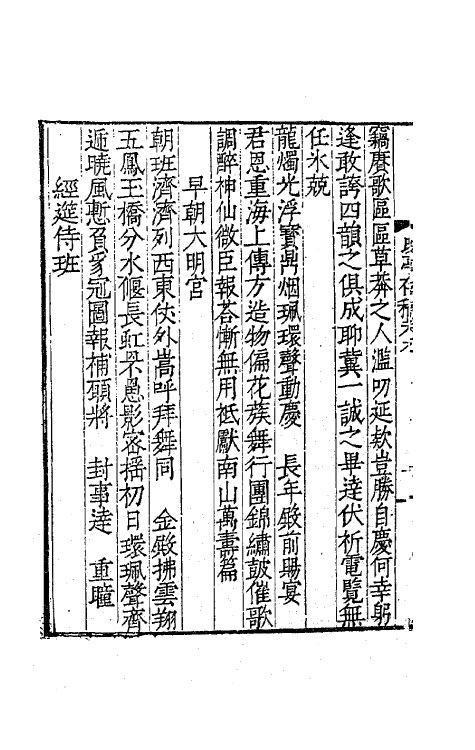 竊賡歌區區草莽之人濫叨延欵豈勝自慶何幸躬
逢敢誇四韻之俱成聊冀一誠之畢達伏祈電覽無
任氷兢
龍燭光浮寳鼎烟珮環聲動慶　長年殿前賜宴
君恩重海上傳方造物偏花蔟舞行團錦繡鼓催歌
調醉神仙微臣報荅慚無用祗獻南山萬壽篇
早朝大明宫
朝班濟濟列西東仗外嵩呼拜舞同　金殿拂雲翔
五鳳玉橋分水偃長虹罘罳影宻揺初日環珮聲齊
遞曉風慙負豸冠圖報補頭將　封事達　重瞳
經筵侍班